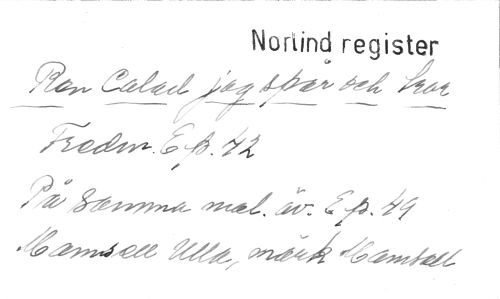 Norlind register
Ren Calad jag spår och tror
Fredm. Ep. 42
På samma mel. äv. Ep. 49
Mamsell Ulla, märk Mamsell